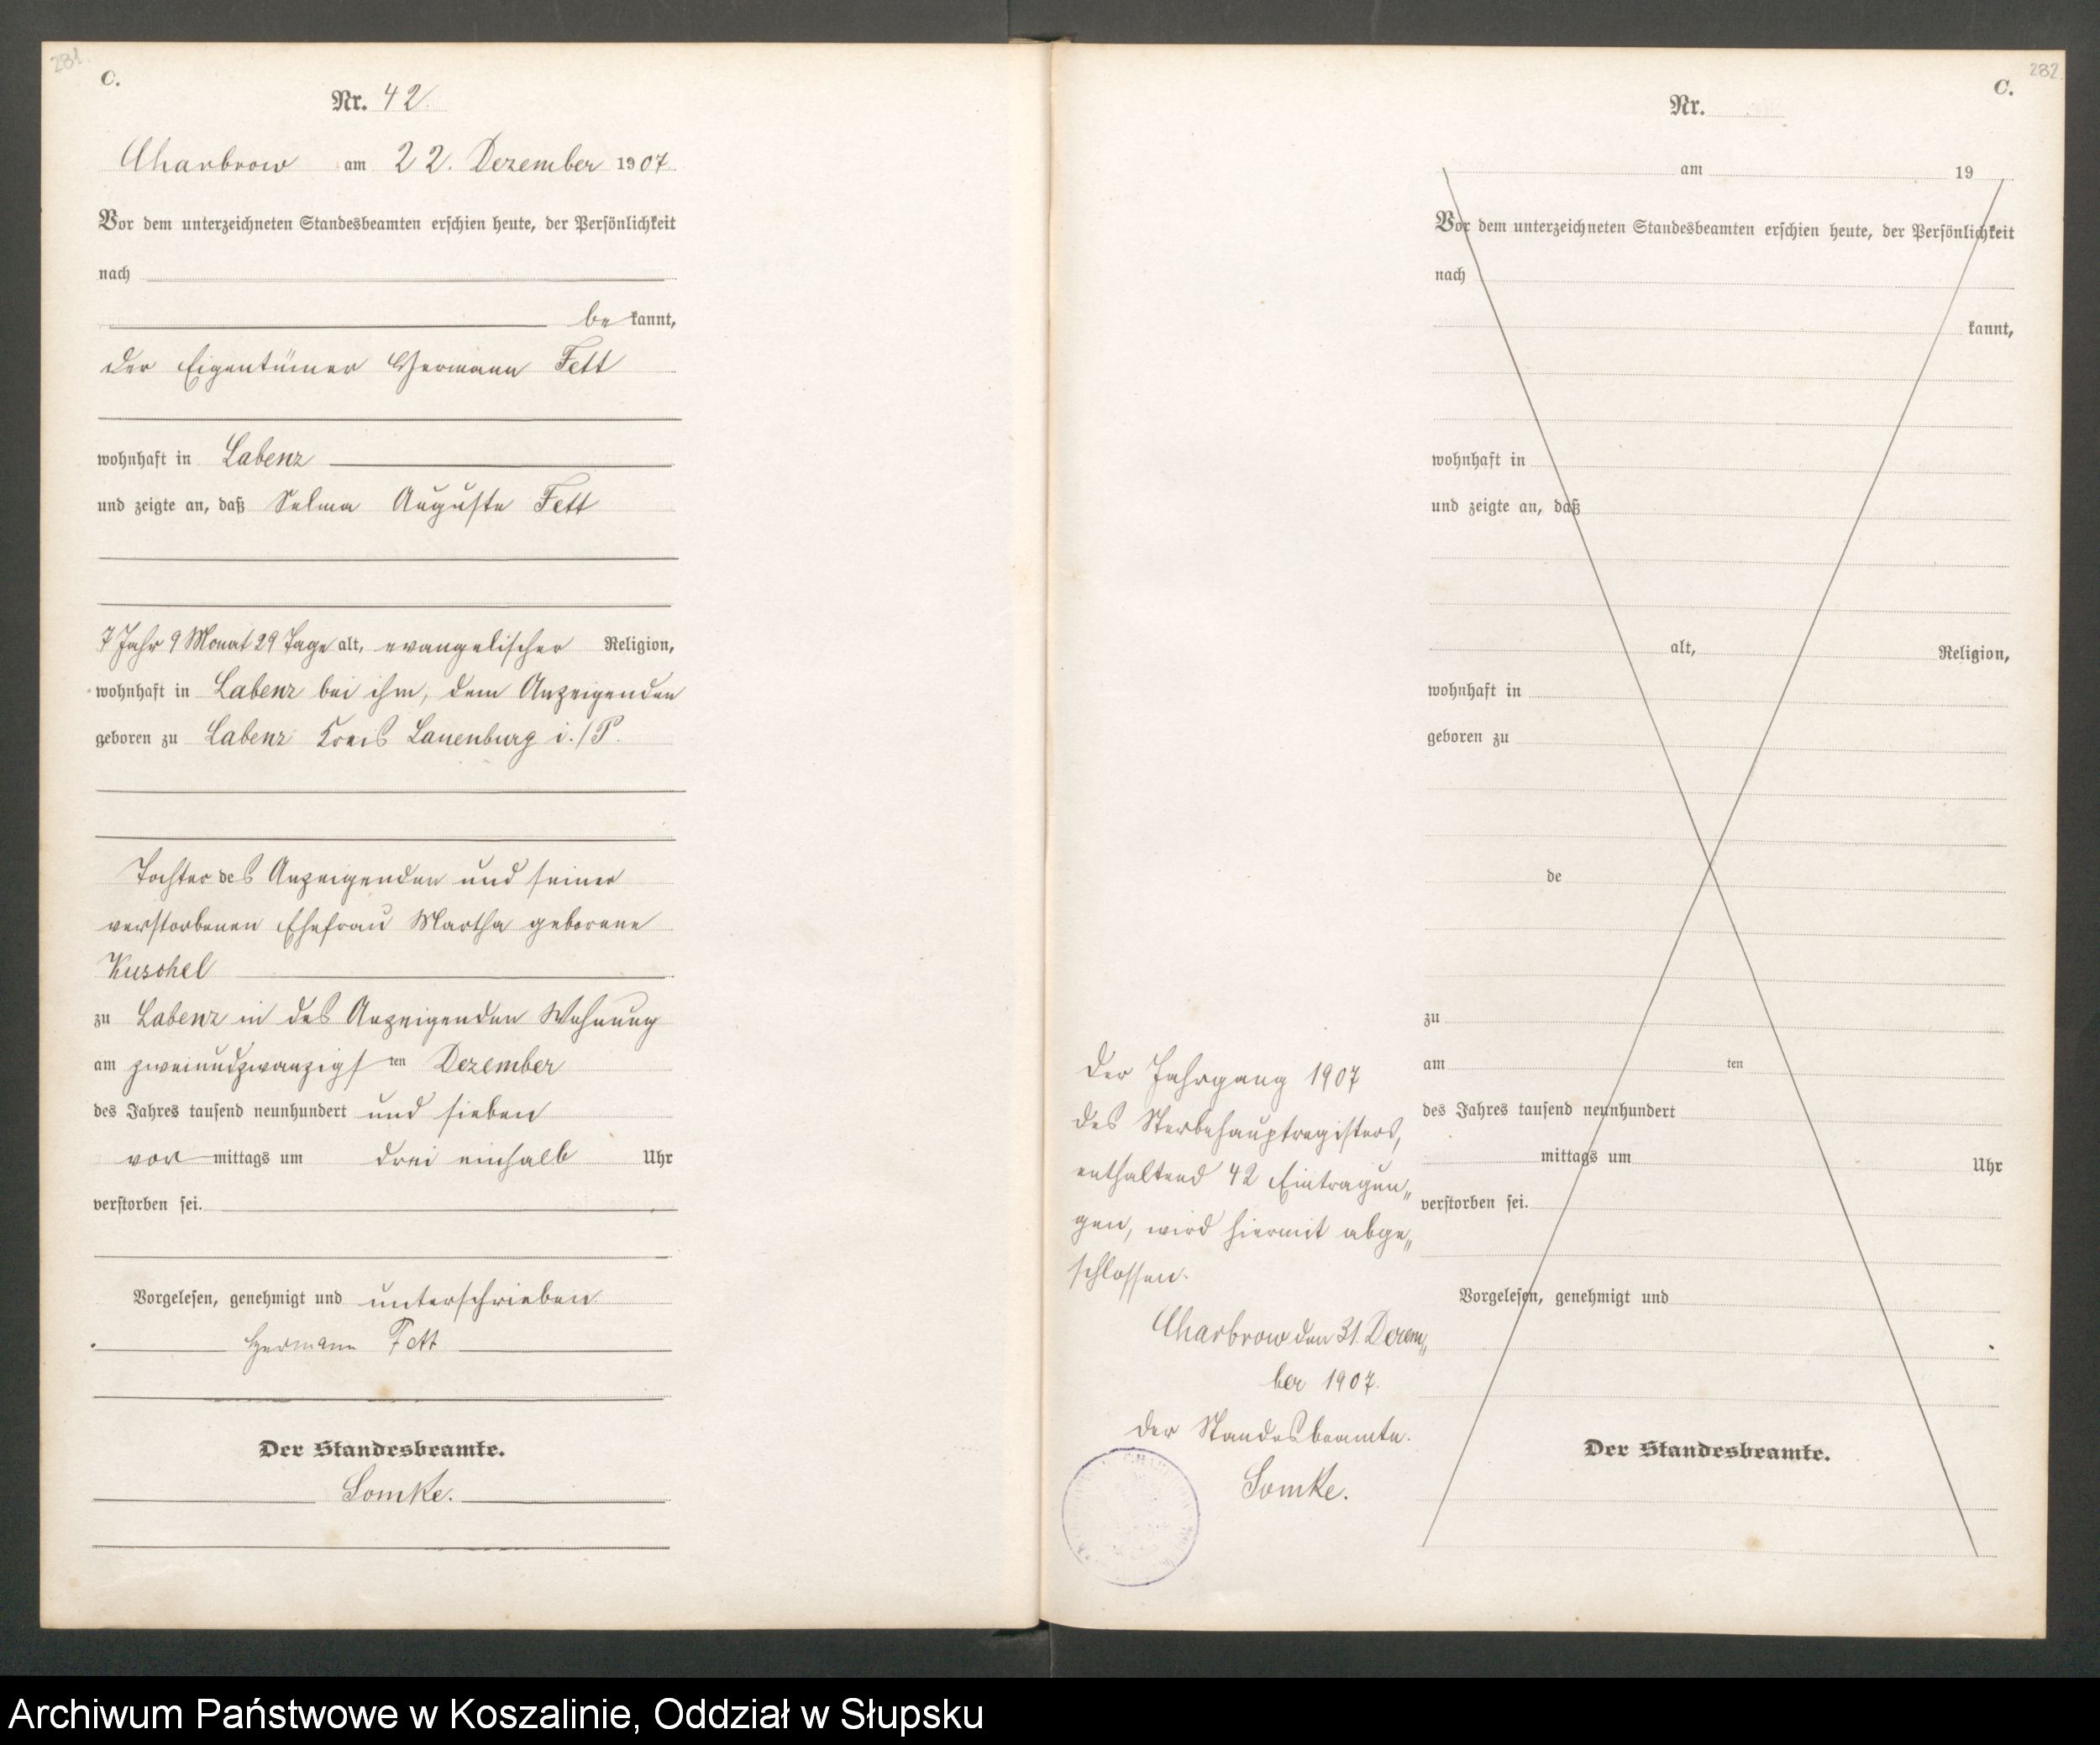 281.
C.
Nr. 42.
Charbrow am 22. Dezember 1907.
Vor dem unterzeichneten Standesbeamten erschien heute, der Persönlichkeit
nach
be kannt,
der Eigentümer Hermann Fett
wohnhaft in Labenz
und zeigte an, daß Selma Auguste Fett
7 Jahr 9 Monat 29 Tage alt, evangelischer Religion,
wohnhaft in Labenz bei ihm, dem Anzeigenden
geboren zu Labenz Kreis Lauenburg i./P.
Tochter des Anzeigenden und seiner
verstorbenen Ehefrau Martha geborene
Kuschel
zu Labenz in des Anzeigenden Wohnung
am zweiundzwanzigsten Dezember
des Jahres tausend neunhundert und sieben
vor mittags um drei einhalb Uhr
verstorben sei.
Vorgelesen, genehmigt und unterschrieben.
Hermann Fett
Der Standesbeamte.
Lomke.
282.
C.
Nr.
am 19
Vor dem unterzeichneten Standesbeamten erschien heute, der Persönlichkeit
nach
kannt,
wohnhaft in
und zeigte an, daß
alt, Religion,
wohnhaft in
geboren zu
de
zu
am ten
des Jahres tausend neunhundert
mittags um Uhr
verstorben sei.
Vorgelesen, genehmigt und
Der Standesbeamte.
Der Jahrgang 1907
des Sterbehauptregisters,
enthaltend 42 Eintragun„
gen, wird hiermit abge„
schlossen.
Charbrow den 31. Dezem„
ber 1907.
Der Standesbeamte.
Lomke.
Archiwum Państwowe w Koszalinie, Oddział w Słupsku